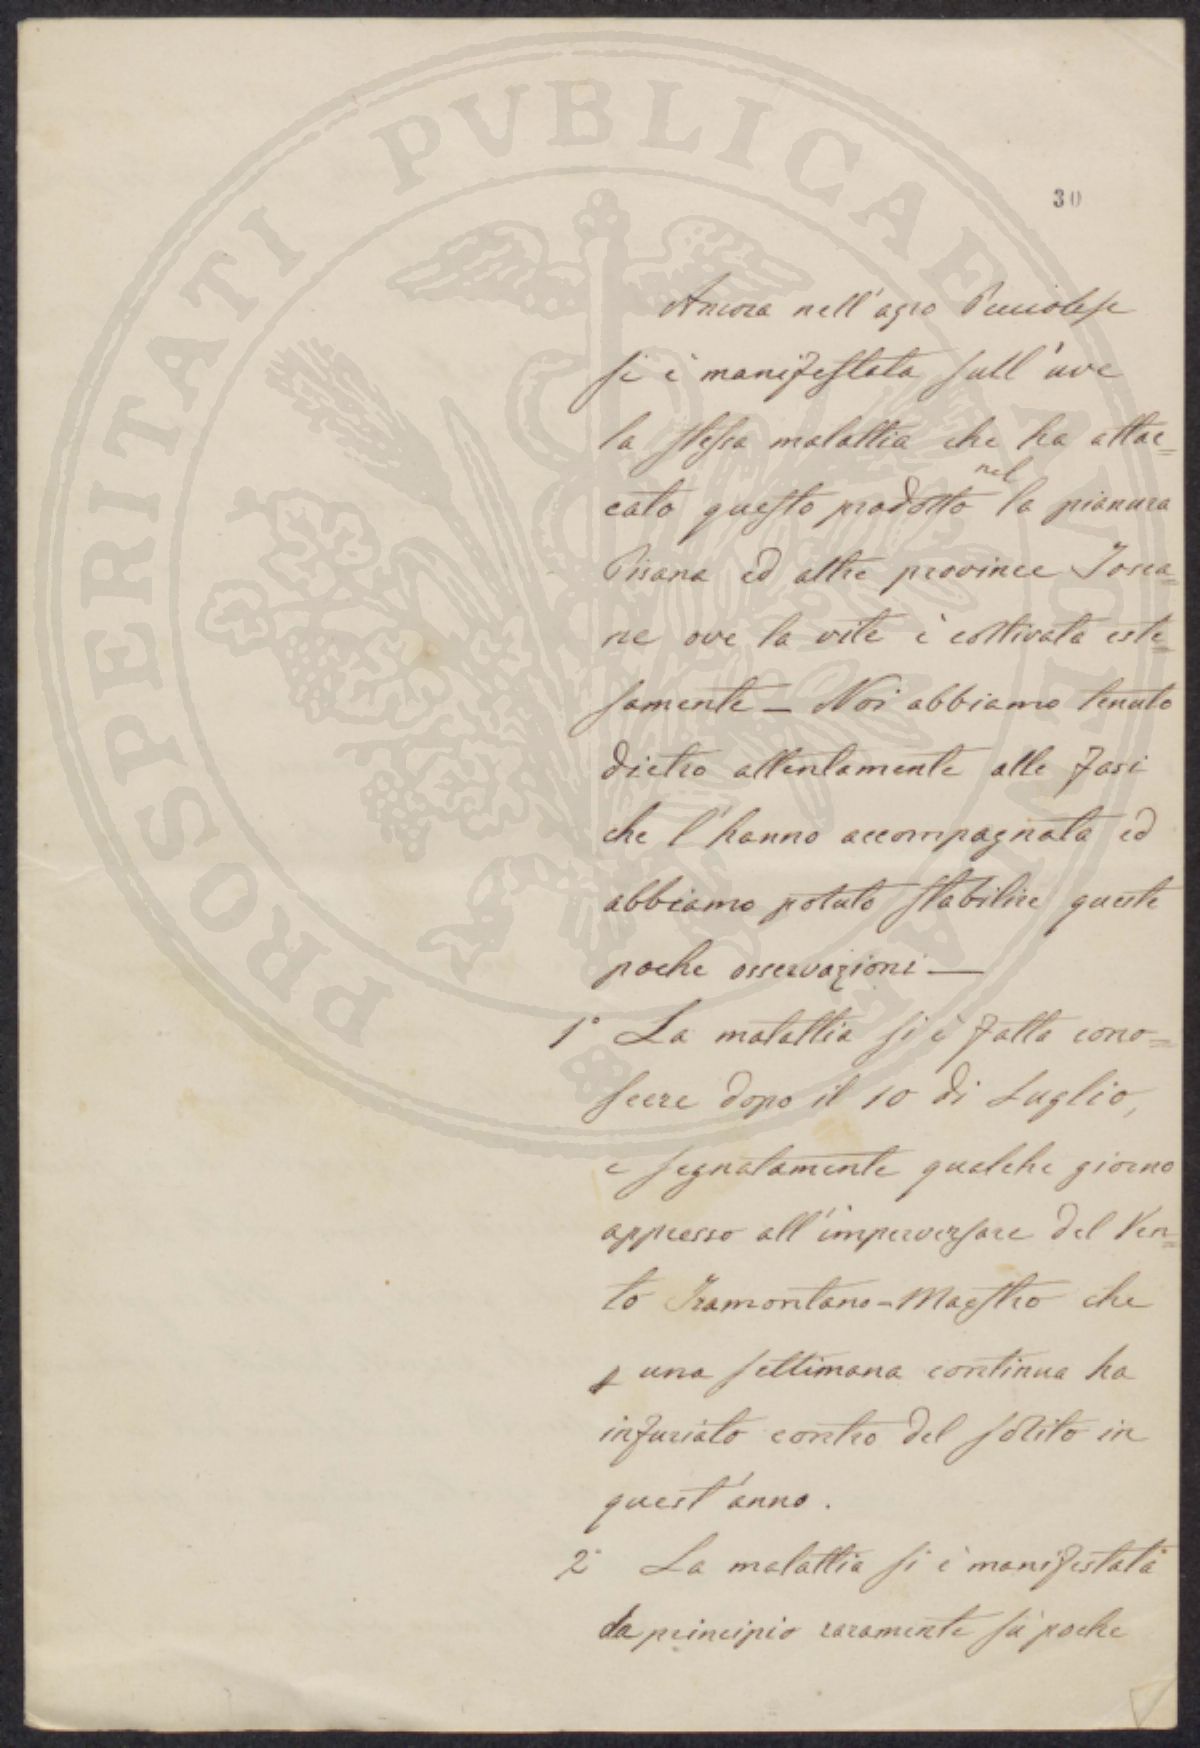 PROSPERITATI PUBLICAE AUGENDAE
30
Ancora nell'agro Pecciolese
si è manifestata sull'uve
la stessa malattia che ha attac=
cato questo prodotto nella pianura
Pisana ed altre province Tosca=
ne ove la vite è coltivata este=
samente _ Noi abbiamo tenuto
dietro attentamente alle fasi
che l'hanno accompagnata ed
abbiamo potuto stabilire queste
poche osservazioni —
1° La malattia si è fatta cono=
scere dopo il 10 di Luglio,
e segnatamente qualche giorno
appresso all'imperversare del Ven=
to Tramontano=Maestro che
una settimana continua ha
infuriato contro del solito in
quest'anno.
2° La malattia si è manifestata
da principio raramente su poche